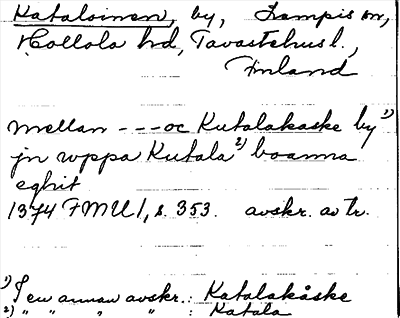 Kataloinen, by, Lampis sn,
Hollola hd, Tavastehus l.,
Finland
mellan --- oc Kutalakaske by 1)
jn uppa Kutala 2) boanna
eghit
1374 FMU 1, s. 353. avskr. av tr.
1) I en annan avskr.: Katalakåske
2) " " " " : Katala